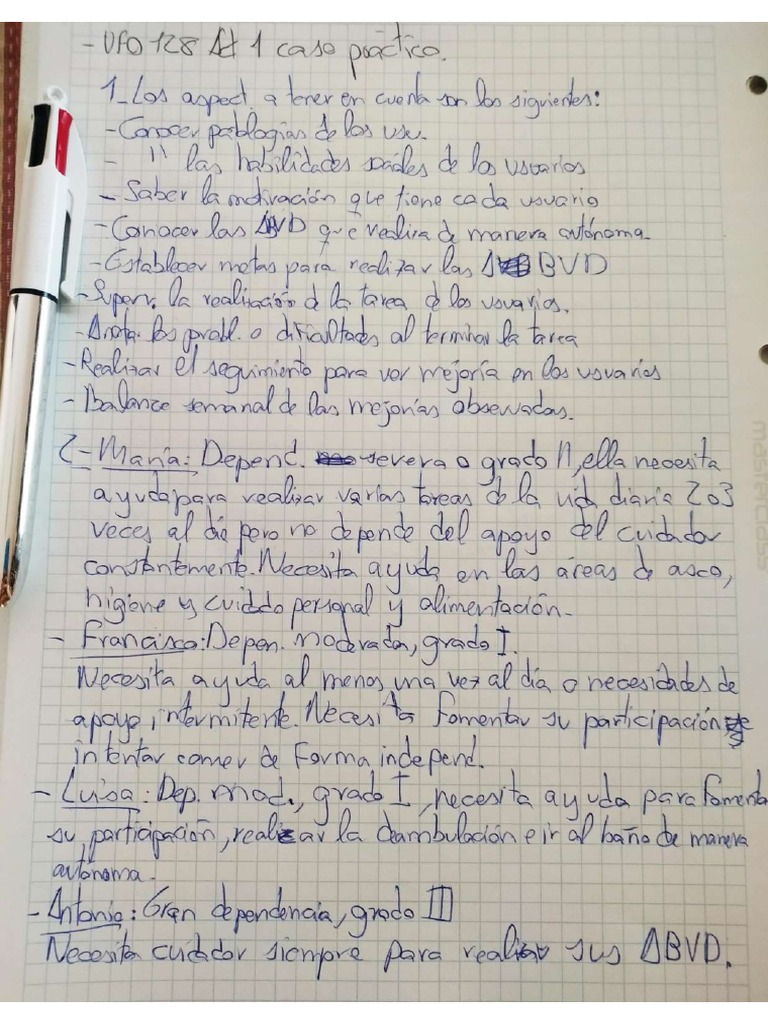 - UF0128 At 1 caso práctico.
1- Los aspect. a tener en cuenta son los siguientes:
- Conocer patologías de los usu.
- " las habilidades sociales de los usuarios
- Saber la motivación que tiene cada usuario
- Conocer las ABVD que realiza de manera autónoma.
- Establecer metas para realizar las ABVD
- Superv. la realización d la tarea d los usuarios.
- Anota. los probl. o dificultades al terminar la tarea
- Realizar el seguimiento para ver mejoría en los usuarios
- Balance semanal de las mejorías observadas.
2- María: Depend. severa o grado II, ella necesita
ayuda para realizar varias tareas de la vida diaria 2 o 3
veces al día pero no depende del apoyo del cuidador
constantemente. Necesita ayuda en las áreas de aseo,
higiene y cuiddo personal y alimentación.
- Francisco: Depen. moderada, grado I.
Necesita ayuda al menos una vez al día o necesidades de
apoyo intermitente. Necesita fomentar su participación e
intentar comer de forma independ.
- Luisa: Dep. mod., grado I, necesita ayuda para fomenta
su participación, realizar la deambulación e ir al baño de manera
autónoma.
- Antonio: Gran dependencia, grado III
Necesita cuidador siempre para realizar sus ABVD.
masterclass